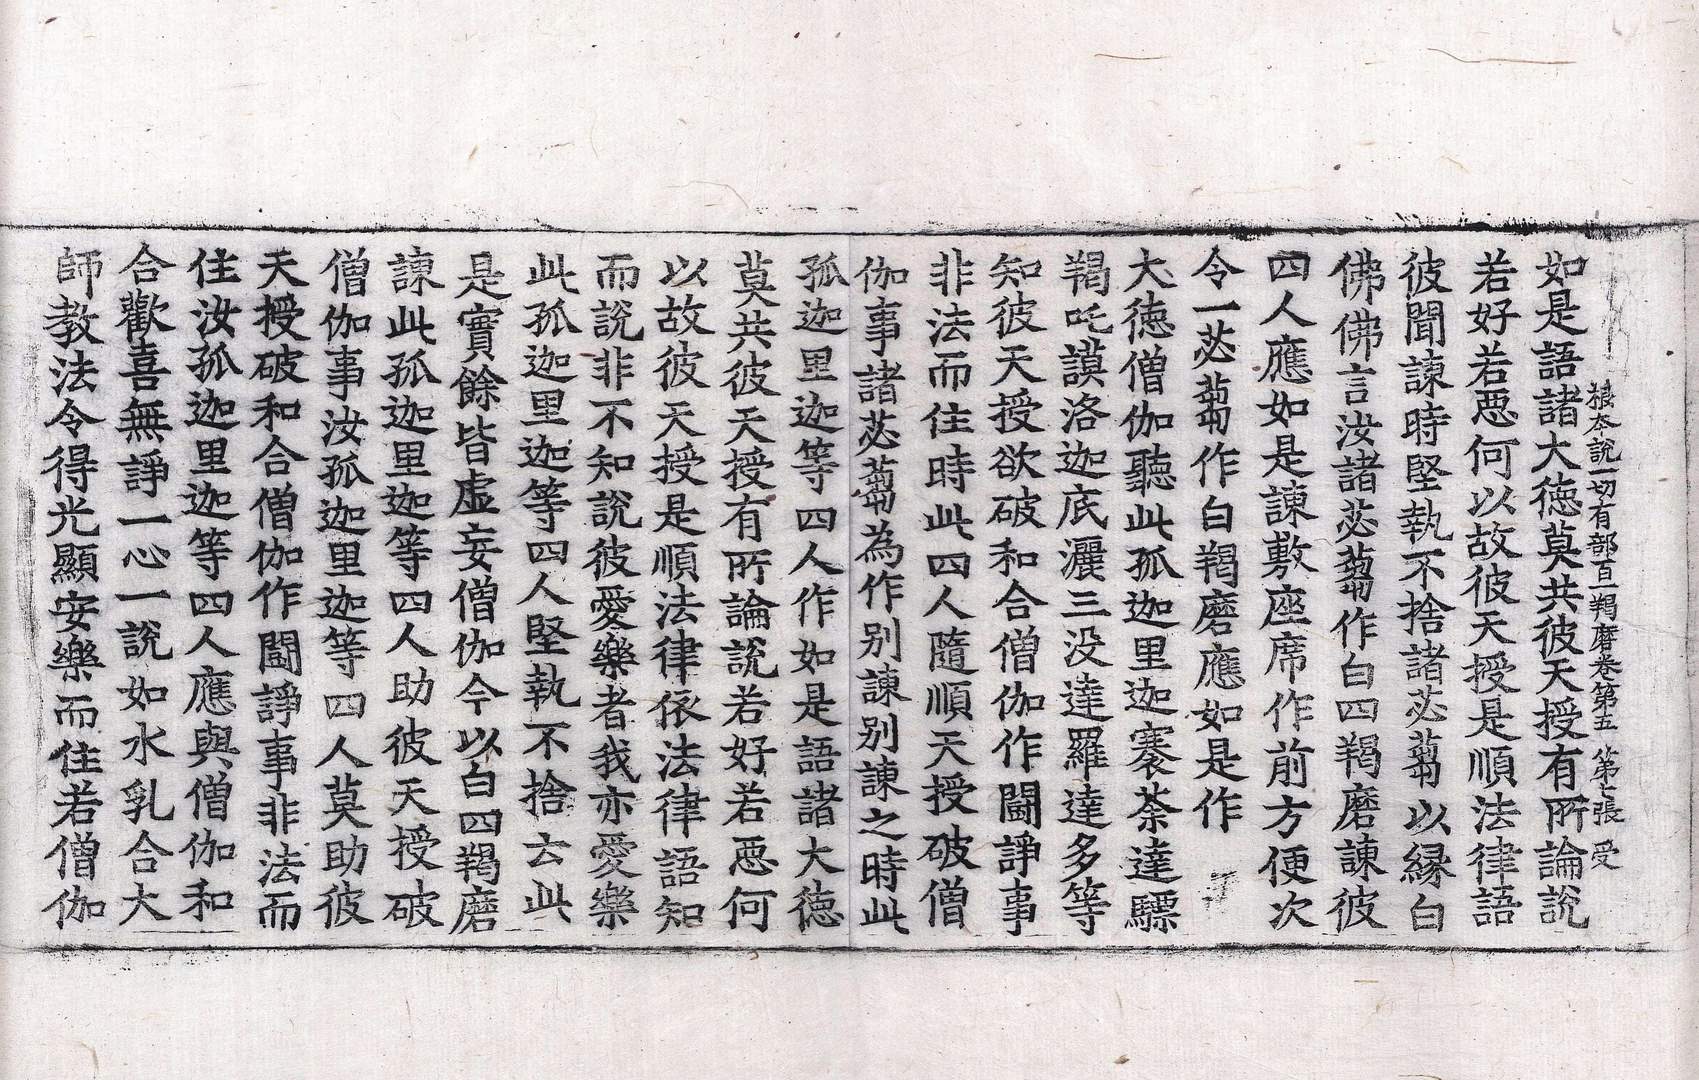 根本說一切有部百一羯磨卷第五 第七張 受
如是語諸大德莫共彼天授有所論說
若好若惡何以故彼天授是順法律語
彼聞諫時堅執不捨諸苾蒭以緣白
佛佛言汝諸苾蒭作白四羯磨諫彼
四人應如是諫敷座席作前方便次
令一苾蒭作白羯磨應如是作
大德僧伽聽此孤迦里迦褰荼達驃
羯吒謨洛迦底灑三沒達羅達多等
知彼天授欲破和合僧伽作鬪諍事
非法而住時此四人隨順天授破僧
伽事諸苾蒭為作別諫別諫之時此
孤迦里迦等四人作如是語諸大德
莫共彼天授有所論說若好若惡何
以故彼天授是順法律依法律語知
而說非不知說彼愛樂者我亦愛樂
此孤迦里迦等四人堅執不捨云此
是實餘皆虛妄僧伽今以白四羯磨
諫此孤迦里迦等四人助彼天授破
僧伽事汝孤迦里迦等四人莫助彼
天授破和合僧伽作鬪諍事非法而
住汝孤迦里迦等四人應與僧伽和
合歡喜無諍一心一說如水乳合大
師教法令得光顯安樂而住若僧伽